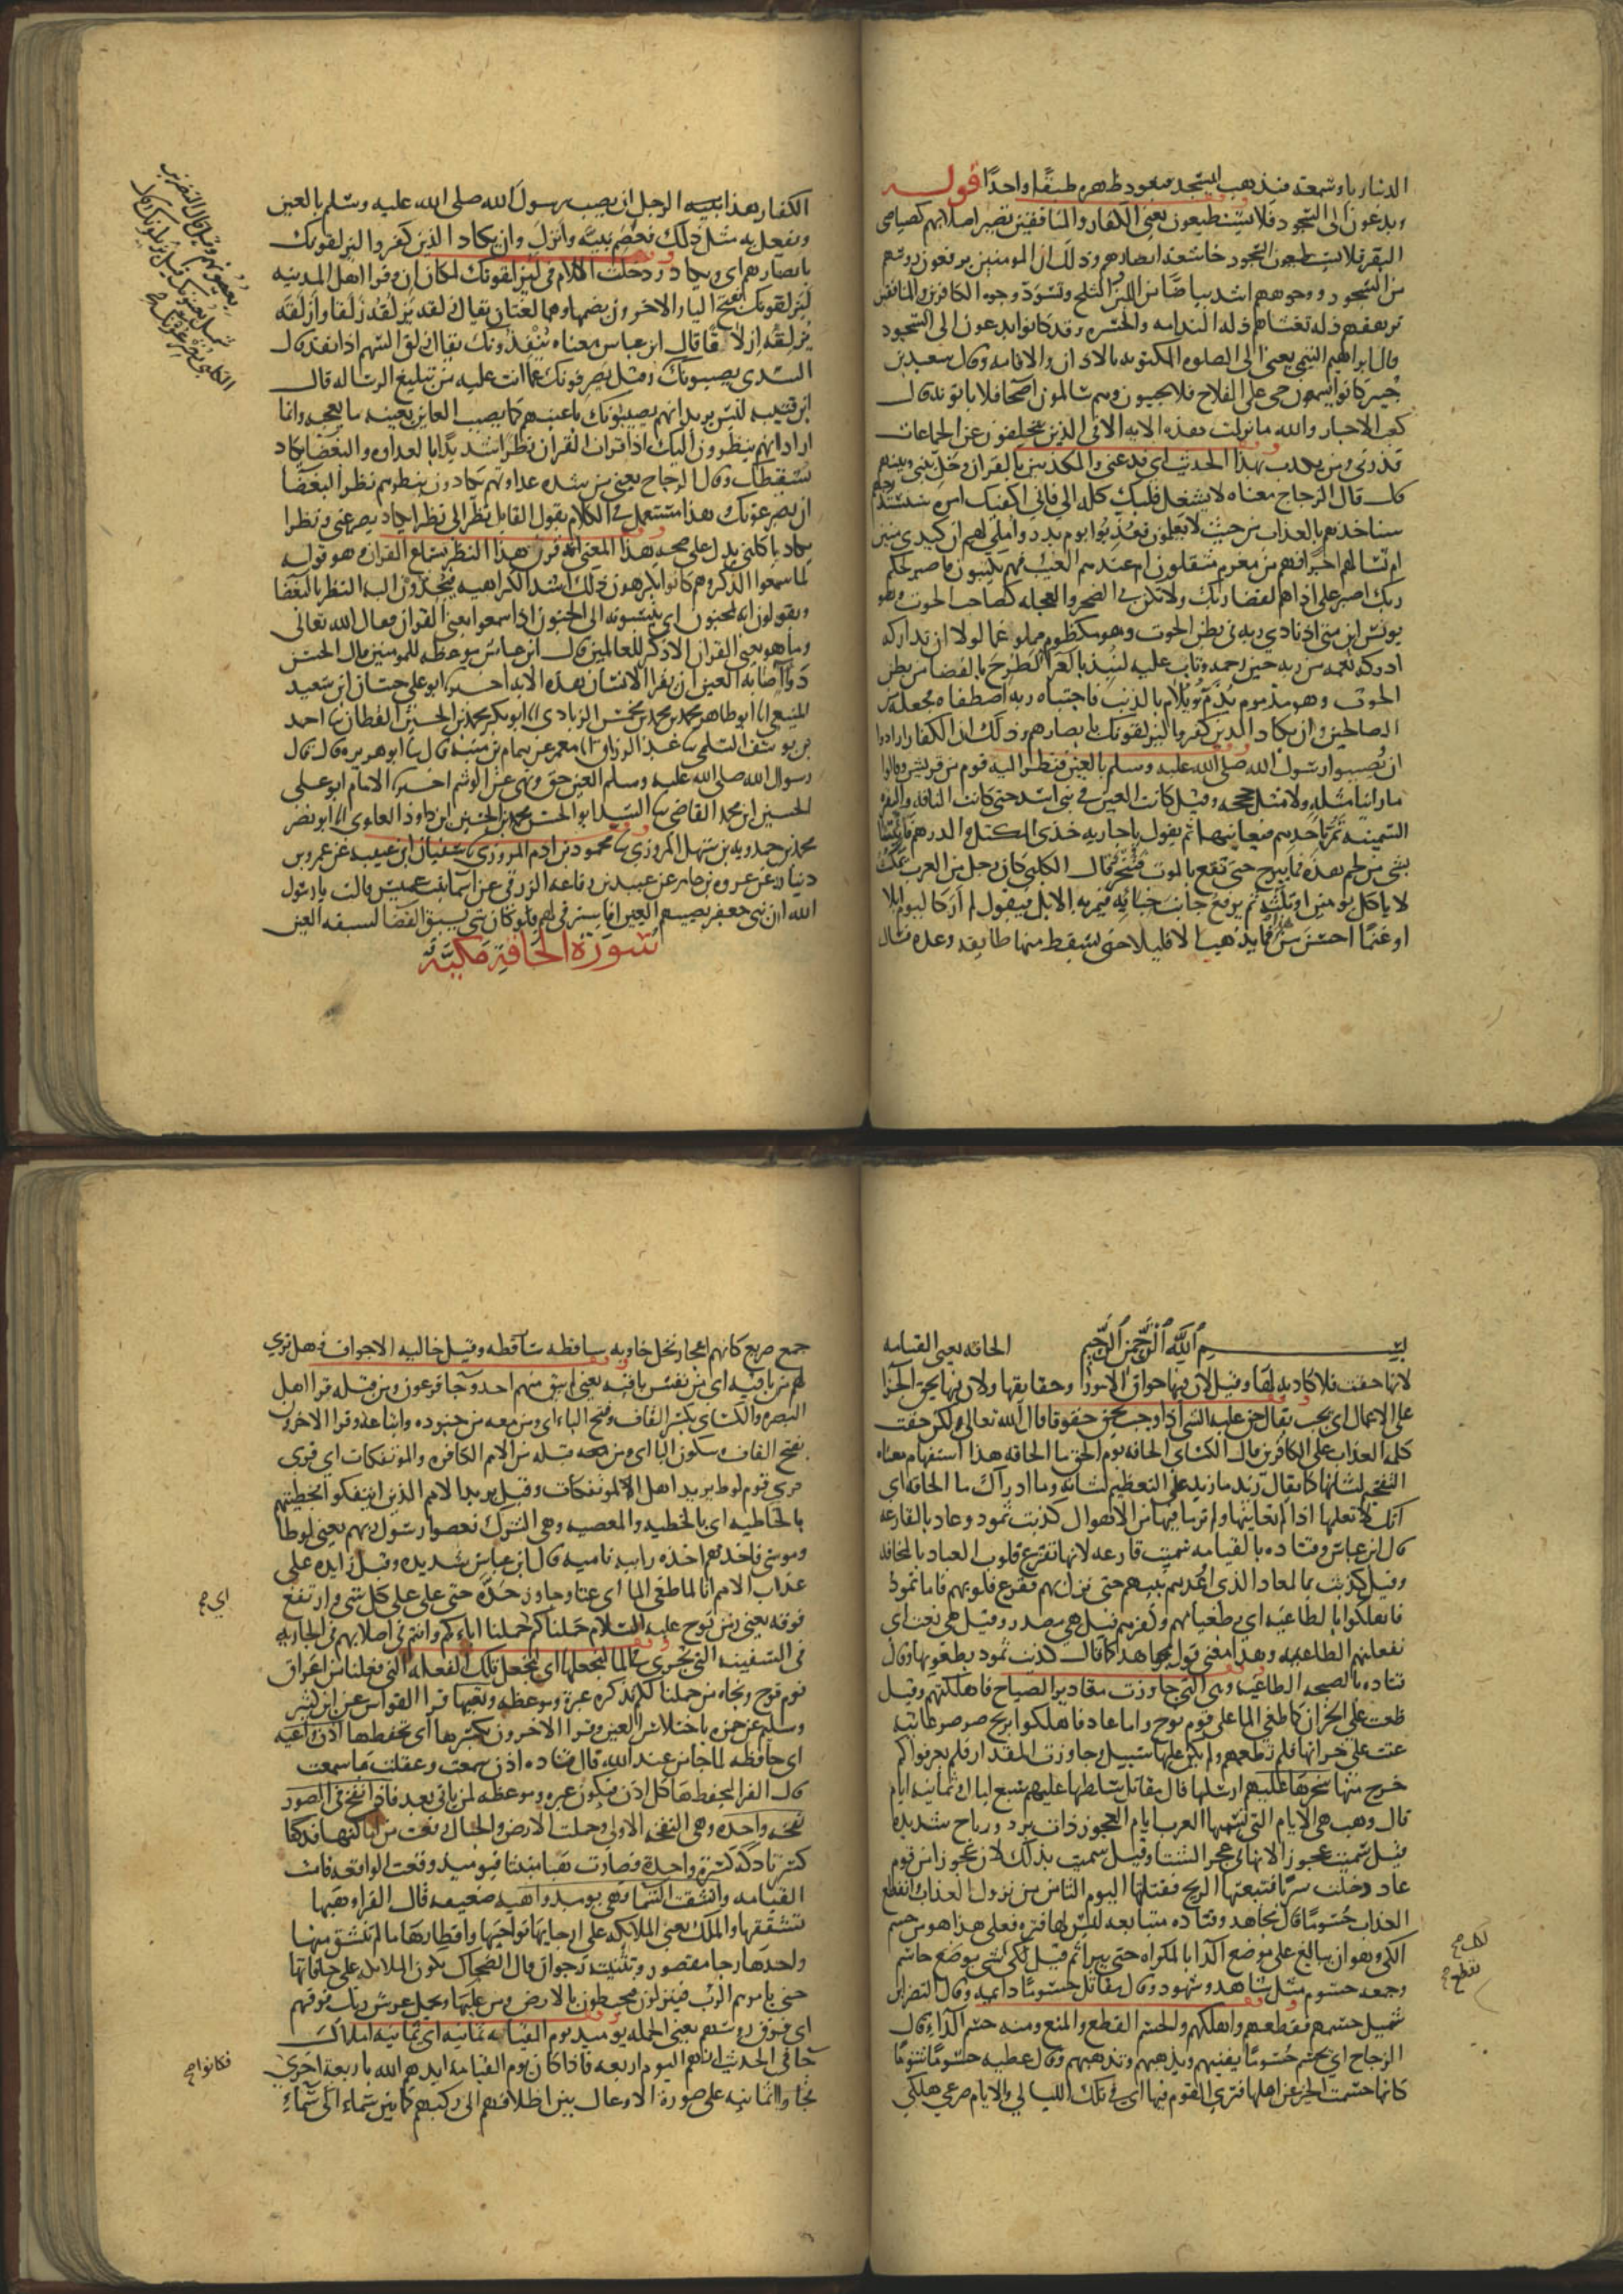 الدنيا رياء وسمعة فيذهب ليسجد فيعود ظهره طبقا واحدا قوله
ويدعون الى السجود فلا يستطيعون يعنى الكفار والمنافقين تصير اصلابهم كصياصى
البقر فلا يستطيعون السجود خاشعة ابصارهم وذلك ان المومنين يرفعون روسهم
من السجود ووجوههم اشد بياضا من الثلج وتسود وجوه الكافرين والمنافقين
ترهقهم ذلة تغشاهم ذله الندامه والحسره وقد كانوا يدعون الى السجود
قال ابراهيم التيمي يعنى الى الصلوه المكتوبه بالاذان والاقامه وقال سعيد بن
جبير كانوا يسمعون حى على الفلاح فلا يجيبون وهم سالمون اصحا فلا ياتونه قال
كعب الاحبار والله ما نزلت هذه الايه الا فى الذين يتخلفون عن الجماعات
فذرنى ومن يكذب بهذا الحديث اى فدعنى والمكذبين بالقران وخل بينى وبينهم
قال الزجاج معناه لا يشغل قلبك كله الى فانى اكفيك امره سنستدرجهم
سناخذهم بالعذاب من حيث لا يعلمون فعذبوا يوم بدر واملى لهم ان كيدى متين
ام تسالهم اجرا فهم من مغرم مثقلون ام عندهم الغيب فهم يكتبون فاصبر لحكم
ربك اصبر على اذاهم لقضا ربك ولا تكن فى الضجر والعجله كصاحب الحوت وهو
يونس ابن متى اذ نادى ربه فى بطن الحوت وهو مكظوم مملو غما لولا ان تداركه
ادركه نعمه من ربه حين رحمه وتاب عليه لنبذ بالعراء لطرح بالفضا من بطن
الحوت وهو مذموم يذم ويلام بالذنب فاجتباه ربه اصطفاه فجعله من
الصالحين وان يكاد الذين كفروا ليزلقونك بابصارهم وذلك ان الكفار ارادوا
ان يصيبوا رسول الله صلى الله عليه وسلم بالعين فنظر اليه قوم من قريش وقالوا
ما راينا مثله ولا مثل حججه وقيل كانت العين فى بنى اسد حتى كانت الناقه والبقره
السمينه تمر باحدهم فيعاينها ثم يقول يا جاريه خذى المكتل والدرهم فاتينا
بشى من لحم هذه فما يبرح حتى تقع بالموت فتنحر وقال الكلبى كان رجل من العرب يمكث
لا ياكل يومين او ثلثه ثم يرفع جانب خبائه فتمر به الابل فيقول لم ار كاليوم ابلا
او غنما احسن من هذه فما يذهب الا قليلا حتى تسقط منها طايفه وعده فسال
الكفار هذا الرجل ان يصيب رسول الله صلى الله عليه وسلم بالعين
ويفعل به مثل ذلك فعصم نبيه وانزل وان يكاد الذين كفروا ليزلقونك
بابصارهم اى ويكاد ودخلت اللام فى ليزلقونك لمكان ان وقرا اهل المدينه
ليزلقونك بفتح اليا والاخرون بضمها وهما لغتان يقال زلقه يزلقه زلقا وازلقه
يزلقه ازلاقا قال ابن عباس معناه ينفذونك يقال زلق السهم اذا نفذ قال
السدى يصيبونك وقيل يصرفونك عما انت عليه من تبليغ الرساله قال
ابن قتيبه ليس يريد انهم يصيبونك باعينهم كما يصيب العاين بعينه ما يعجبه وانما
اراد انهم ينظرون اليك اذا قرات القران نظرا شديدا بالعداوه والبغضا يكاد
يسقطك وقال الزجاج يعنى من شده عداوتهم يكادون بنظرهم نظر البغضا
ان يصرعونك هذا مستعمل فى الكلام يقول القايل نظر الى نظرا يكاد يصرعنى ونظرا
يكاد ياكلنى يدل على صحه هذا المعنى انه قرن هذا النظر بسماع القران وهو قوله
لما سمعوا الذكر وهم كانوا يكرهون ذلك اشد الكراهيه فيحدون اليه النظر بالبغضا
ويقولون انه لمجنون اى ينسبونه الى الجنون اذا سمعوا يعنى القران فقال الله تعالى
وما هو يعنى القران الا ذكر للعالمين قال ابن عباس موعظه للمومنين قال الحسن
دوا اصابه العين ان يقرا الانسان هذه الايه اخبرنا ابو على حسان ابن سعيد
المنيعى انا ابو طاهر محمد بن محمد بن محمش الزيادى انا ابو بكر محمد بن الحسين القطان نا احمد
بن يوسف السلمى نا عبد الرزاق انا معمر عن همام بن منبه قال نا ابو هريره قال قال
رسول الله صلى الله عليه وسلم العين حق ونهى عن الوشم اخبرنا الامام ابو على
الحسين ابن محمد القاضى نا السيد ابو الحسن محمد بن الحسين ابن داود العلوى انا ابو نصر
محمد بن حمدويه بن سهل المروزى نا محمود بن ادم المروزى نا سفيان ابن عيينه عن عمرو بن
دينار عن عروه بن عامر عن عبيد بن رفاعه الزرقى عن اسما بنت عميس قالت يا رسول
الله ان بنى جعفر يصيبهم العين افاسترقى لهم فلو كان شى يسبق القضا لسبقه العين
سورة الحاقة مكية
بسم الله الرحمن الرحيم الحاقه يعنى القيامه
لانها حقت فلا كاذبه لها وقيل لان فيها حواق الامور وحقايقها ولان فيها يحق الجزا
على الاعمال اى يجب يقال حق عليه الشى اذا وجب يحق حقوقا قال الله تعالى ولكن حقت
كلمه العذاب على الكافرين قال الكسائى الحاقه يوم الحق ما الحاقه هذا استفهام معناه
التفخيم لشانها كما يقال زيد ما زيد على التعظيم لشانه وما ادراك ما الحاقه اى
انك لا تعلمها اذا لم تعاينها ولم تر ما فيها من الاهوال كذبت ثمود وعاد بالقارعه
قال ابن عباس وقتاده بالقيامه سميت قارعه لانها تقرع قلوب العباد بالمخافه
وقيل كذبت بالعذاب الذى اوعدهم نبيهم حتى نزل بهم فقرع قلوبهم فاما ثمود
فاهلكوا بالطاغيه اى بطغيانهم وكفرهم قيل هى مصدر وقيل هى نعت اى
بفعلتهم الطاغيه وهذا معنى قول مجاهد كما قال كذبت ثمود بطغويها وقال
قتاده بالصيحه الطاغيه وهى التى جاوزت مقادير الصياح فاهلكتهم وقيل
طغت على الخزان كما طغى الما على قوم نوح واما عاد فاهلكوا بريح صرصر عاتيه
عتت على خزانها فلم تطعهم ولم يكن عليها سبيل وجاوزت المقدار فلم يعرفوا كم
خرج منها سخرها عليهم ارسلها قال مقاتل سلطها عليهم سبع ليال وثمانيه ايام
قال وهب هى الايام التى تسميها العرب ايام العجوز ذات برد ورياح شديده
قيل سميت عجوزا لانها فى عجز الشتا وقيل سميت بذلك لان عجوزا من قوم
عاد دخلت سربا فتبعتها الريح فقتلتها اليوم الثامن من نزول العذاب انقطع
العذاب حسوما قال مجاهد وقتاده متتابعه ليس لها فتره فعلى هذا هو من حسم
الكى وهو ان يبالغ على موضع الدا بالمكواه حتى يبرا ثم قيل لكل شى يوضع حاسم
وجمعه حسوم مثل شاهد وشهود وقال مقاتل حسوما دايمه وقال النضر ابن
شميل حسمهم قطعهم واهلكهم والحسم القطع والمنع ومنه حسم الداء قال
الزجاج اى يحسم حسوما يفنيهم ويذهبهم وقال عطيه حسوما شوما
كانها حسمت الخير عن اهلها فترى القوم فيها اى فى تلك الليالى والايام صرعى هلكى
جمع صريع كانهم اعجاز نخل خاويه ساقطه وقيل خاليه الاجواف فهل ترى
لهم من باقيه اى من نفس باقيه يعنى لم يبق منهم احد وجا فرعون ومن قبله قرا اهل
البصره والكسائى بكسر القاف وفتح الباء اى ومن معه من جنوده واتباعه وقرا الاخرون
بفتح القاف وسكون البا اى ومن قبله من الامم الكافره والموتفكات اى قرى
قوم لوط يريد اهل الموتفكات وقيل يريد الامم الذين ايتفكوا بخطيتهم
بالخاطيه اى بالخطيه والمعصيه وهى الشرك فعصوا رسول ربهم يعنى لوطا
وموسى فاخذهم اخذه رابيه ناميه قال ابن عباس شديده وقيل زايده على
عذاب الامم انا لما طغى الما اى عتا وجاوز حده حتى علا على كل شى وارتفع
فوقه يعنى زمن نوح عليه السلام حملناكم حملنا اباءكم وانتم فى اصلابهم فى الجاريه
فى السفينه التى تجرى فى الما لنجعلها اى لنجعل تلك الفعله التى فعلنا من اغراق
قوم نوح ونجاه من حملنا لكم تذكره عبره وموعظه وتعيها قرا القواس عن ابن كثير
وسليم عن حمزه باختلاس العين وقرا الاخرون بكسرها اى تحفظها اذن واعيه
اى حافظه لما جا من عند الله قال قتاده اذن سمعت وعقلت ما سمعت
قال الفرا لتحفظها كل اذن فيكون عبره وموعظه لمن ياتى بعد فاذا نفخ فى الصور
نفخه واحده وهى النفخه الاولى وحملت الارض والجبال رفعت من اماكنها فدكتا
كسرتا دكه كسره واحده فصارت هبا منبثا فيوميذ وقعت الواقعه قامت
القيامه وانشقت السما فهى يوميذ واهيه ضعيفه قال الفرا وهيها
تشققها والملك يعنى الملائكه على ارجايها نواحيها واقطارها ما لم تنشق منها
واحدها رجا مقصور وتثنيته رجوان قال الضحاك تكون الملائكه على حافاتها
حتى يامرهم الرب فينزلون فيحيطون بالارض ومن عليها ويحمل عرش ربك فوقهم
اى فوق روسهم يعنى الحمله يوميذ يوم القيامه ثمانيه اى ثمانيه املاك
جا فى الحديث انهم اليوم اربعه فاذا كان يوم القيامه ايدهم الله باربعه اخرى
فكانوا
ثمانيه على صوره الاوعال بين اظلافهم الى ركبهم كما بين سماء الى سماء